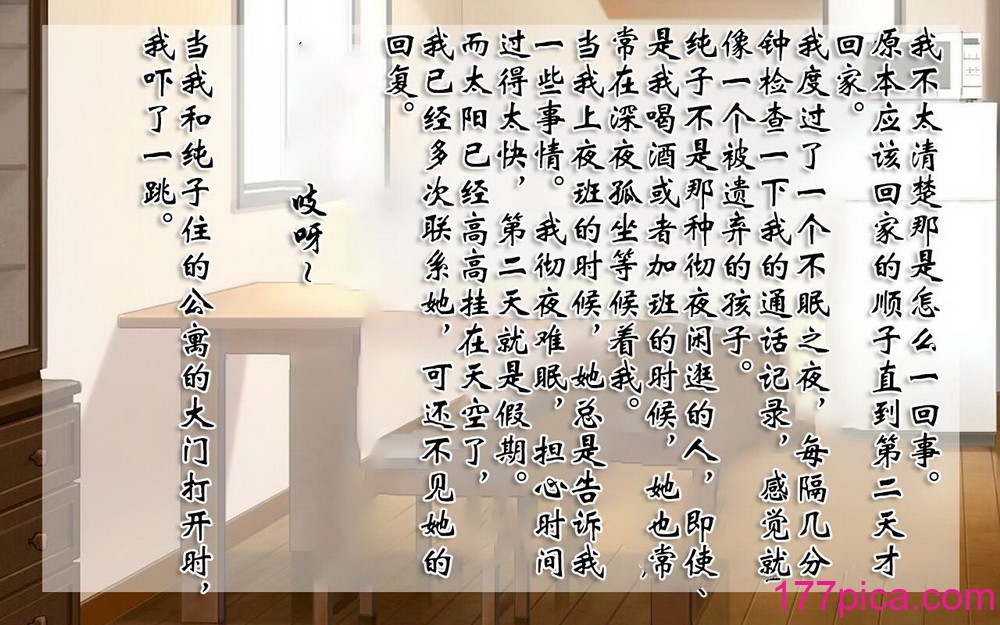 我不太清楚那是怎么一回事。
原本应该回家的顺子直到第二天才
回家。
我度过了一个不眠之夜，每隔几分
钟检查一下我的通话记录，感觉就
像一个被遗弃的孩子。
纯子不是那种彻夜闲逛的人，即使、
是我喝酒或者加班的时候，她也常
常在深夜孤坐等候着我。
当我上夜班的时候，她总是告诉我
一些事情。我彻夜难眠，担心时间
过得太快，第二天就是假期。
而太阳已经高高挂在天空了，
我已经多次联系她，可还不见她的
回复。
吱呀~
当我和纯子住的公寓的大门打开时，
我吓了一跳。
177pica.com